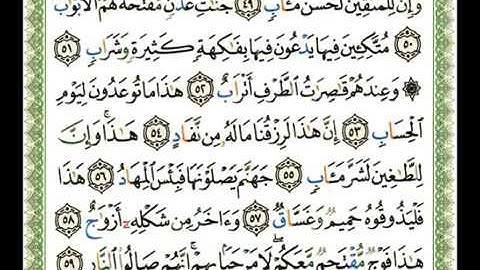 وَإِنَّ لِلْمُتَّقِينَ لَحُسْنَ مَـَٔابٍ ٤٩ جَنَّٰتِ عَدْنٍ مُّفَتَّحَةً لَّهُمُ ٱلْأَبْوَٰبُ
٥٠ مُتَّكِـِٔينَ فِيهَا يَدْعُونَ فِيهَا بِفَٰكِهَةٍ كَثِيرَةٍ وَشَرَابٍ ٥١
۞ وَعِندَهُمْ قَٰصِرَٰتُ ٱلطَّرْفِ أَتْرَابٌ ٥٢ هَٰذَا مَا تُوعَدُونَ لِيَوْمِ
ٱلْحِسَابِ ٥٣ إِنَّ هَٰذَا لَرِزْقُنَا مَا لَهُۥ مِن نَّفَادٍ ٥٤ هَٰذَا ۚ وَإِنَّ
لِلطَّٰغِينَ لَشَرَّ مَـَٔابٍ ٥٥ جَهَنَّمَ يَصْلَوْنَهَا فَبِئْسَ ٱلْمِهَادُ ٥٦ هَٰذَا
فَلْيَذُوقُوهُ حَمِيمٌ وَغَسَّاقٌ ٥٧ وَءَاخَرُ مِن شَكْلِهِۦٓ أَزْوَٰجٌ ٥٨
هَٰذَا فَوْجٌ مُّقْتَحِمٌ مَّعَكُمْ ۖ لَا مَرْحَبًۢا بِهِمْ ۚ إِنَّهُمْ صَالُوا۟ ٱلنَّارِ ٥٩